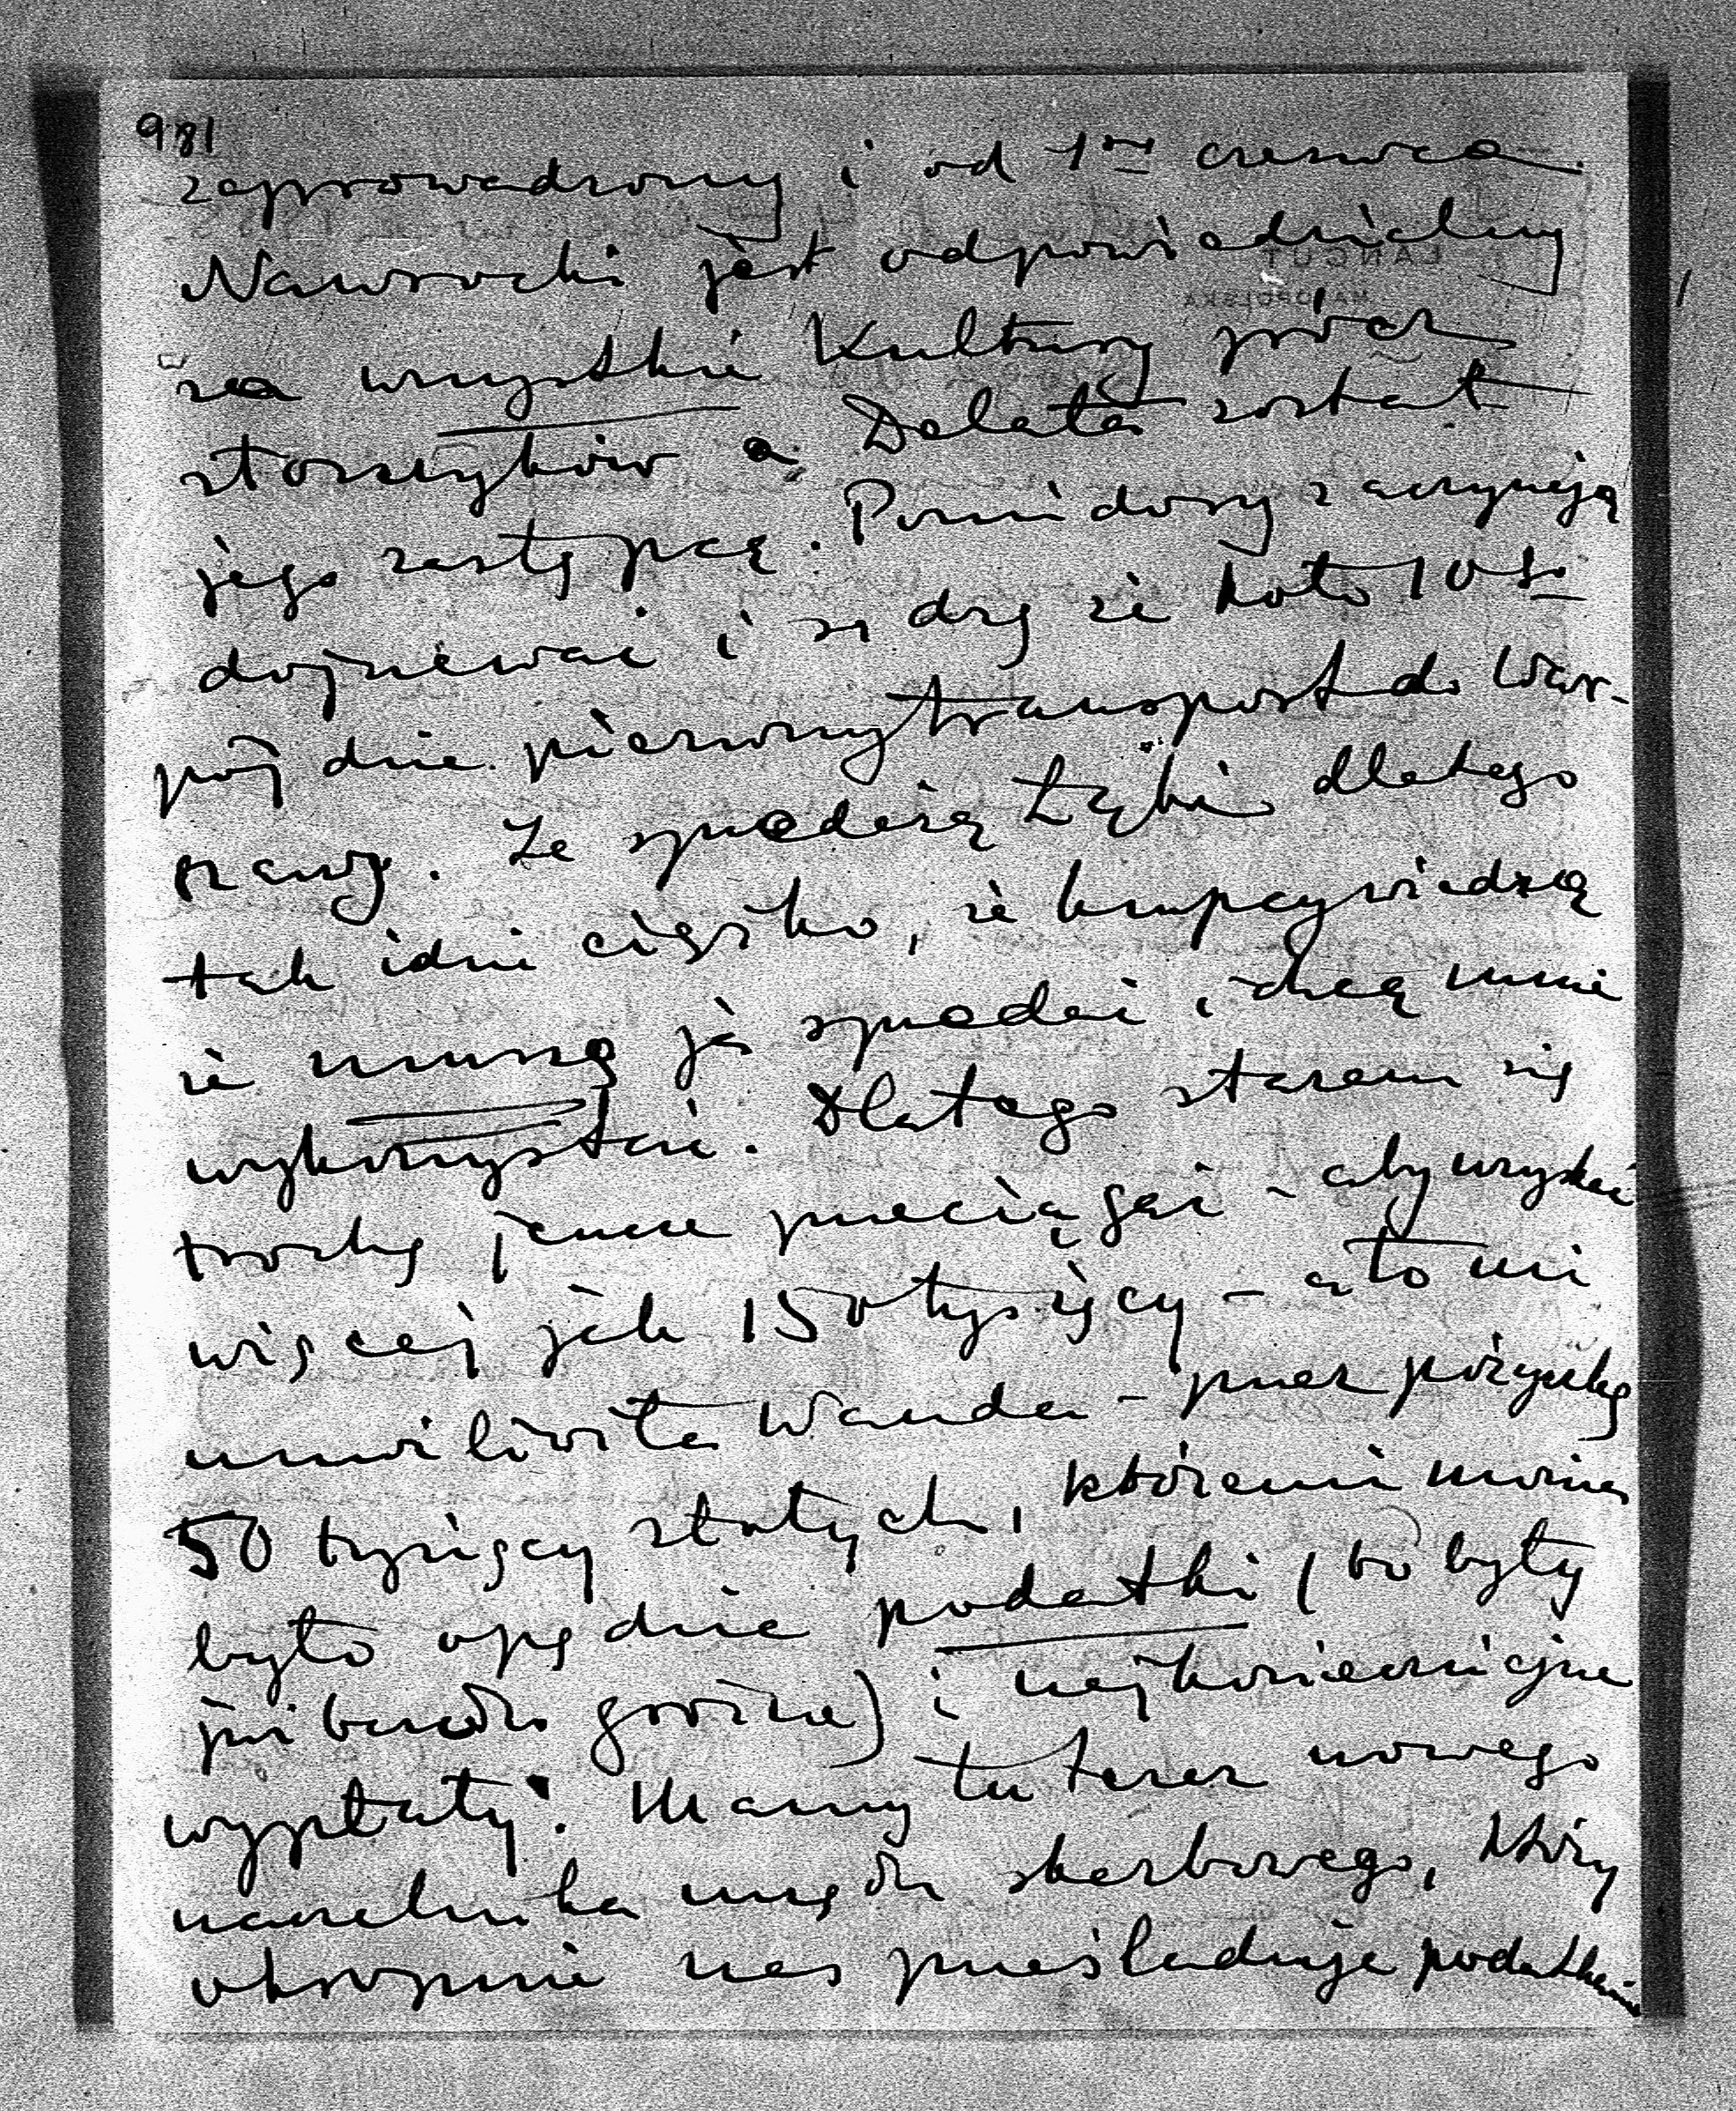 981
zaprowadzony i od 1go czerwca
Nawrocki jest odpowiedzialny
ŁAŃCUT
MAŁOPOLSKA
za wszystkie Kultury prócz
storczyków a Delata został
jego zastępcą. Pomidory zaczynają
dojrzewać i sądzę że koło 10go
pójdzie pierwszy transport do War-
szawy. Ze sprzedażą Łąki dlatego
tak idzie ciężko, że kupcy wiedzą
że muszę ją sprzedać i chcą mnie
wykorzystać. Dlatego staram się
trochę jeszcze przeciągać - aby uzyskać
więcej jak 150 tysięcy - a to mi
umożliwiła Wanda - przez pożyczkę
50 tysięcy złotych, któremi można
było opędzić podatki (bo były
już bardzo groźne) i najkonieczniejsze
wypłaty. Mamy tu teraz nowego
naczelnika urzędu skarbowego, który
okropnie nas prześladuje podatkami